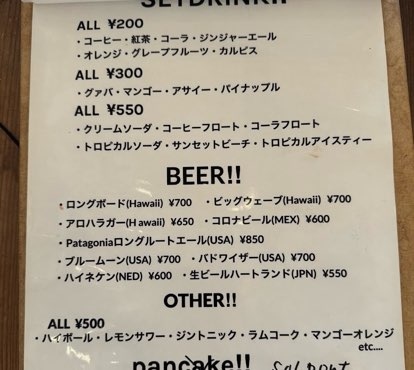 SETDRINK!!
ALL ¥200
・コーヒー・紅茶・コーラ・ジンジャーエール
・オレンジ・グレープフルーツ・カルピス
ALL ¥300
・グァバ・マンゴー・アサイー・パイナップル
ALL ¥550
・クリームソーダ・コーヒーフロート・コーラフロート
・トロピカルソーダ・サンセットピーチ・トロピカルアイスティー
BEER!!
・ロングボード(Hawaii) ¥700 ・ビッグウェーブ(Hawaii) ¥700
・アロハラガー(Hawaii) ¥650 ・コロナビール(MEX) ¥600
・Patagoniaロングルートエール(USA) ¥850
・ブルームーン(USA) ¥700 ・バドワイザー(USA) ¥700
・ハイネケン(NED) ¥600 ・生ビールハートランド(JPN) ¥550
OTHER!!
ALL ¥500
・ハイボール・レモンサワー・ジントニック・ラムコーク・マンゴーオレンジ
etc....
pancake!!